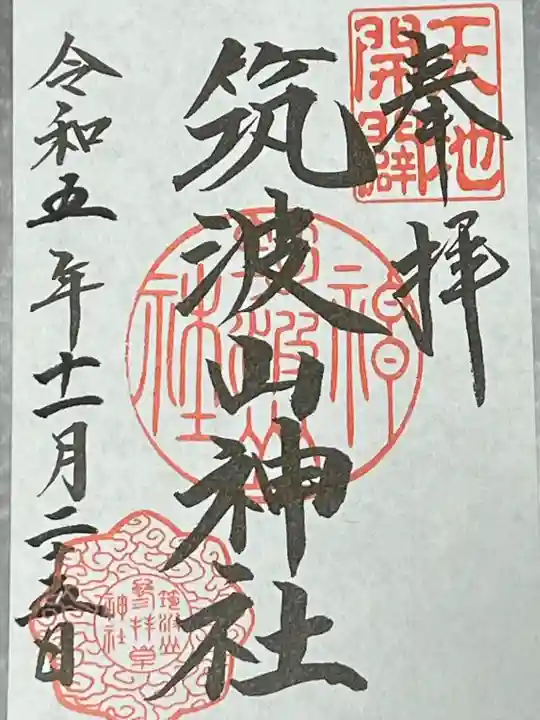 奉拝
天地
開闢
筑波山神社
令和五年十一月二十五日
筑波山
参拝章
神社